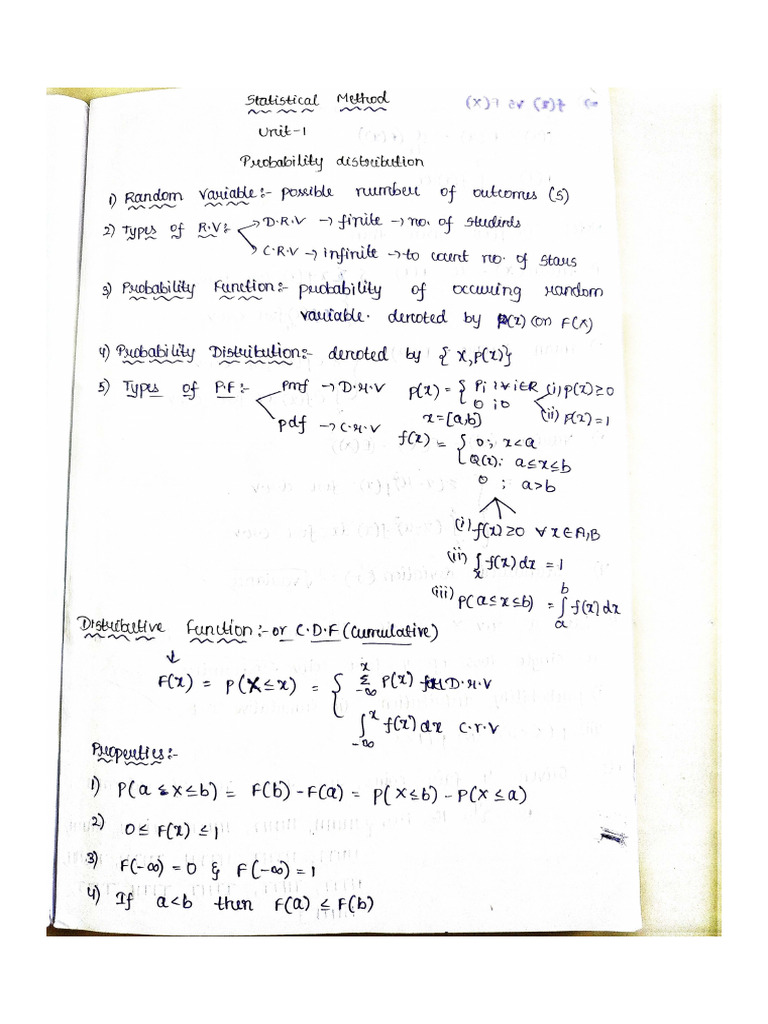 Statistical Method
Unit-1
Probability distribution
1) Random Variable:- possible number of outcomes (S)
2) Types of R.V:- → D.R.V → finite → no. of students
→ C.R.V → infinite → to count no. of stars
3) Probability Function:- probability of occuring random
variable. denoted by P(x) or F(x)
4) Probability Distribution:- denoted by { X, P(x)}
5) Types of P.F:- pmf → D.r.V P(x) = { Pi ; ∀ i∈R (i) P(x) ≥ 0
0 ; 0 (ii) P(x) = 1
pdf → C.r.V x = [a,b]
f(x) = { 0; x<a
Q(x); a≤x≤b
0 ; a>b
(i) f(x) ≥ 0 ∀ x ∈ A,B
(ii) ∫x f(x) dx = 1
(iii) P(a≤x≤b) = ∫a^b f(x) dx
Distributive Function:- or C.D.F (Cumulative)
↓
F(x) = P(X≤x) = { Σ_{-∞}^{x} P(x) for D.r.V
∫_{-∞}^{x} f(x) dx C.r.V
Properties:-
1) P(a ≤ x ≤ b) = F(b) - F(a) = P(X ≤ b) - P(X ≤ a)
2) 0 ≤ F(x) ≤ 1
3) F(-∞) = 0 & F(-∞) = 1
4) If a<b then F(a) ≤ F(b)